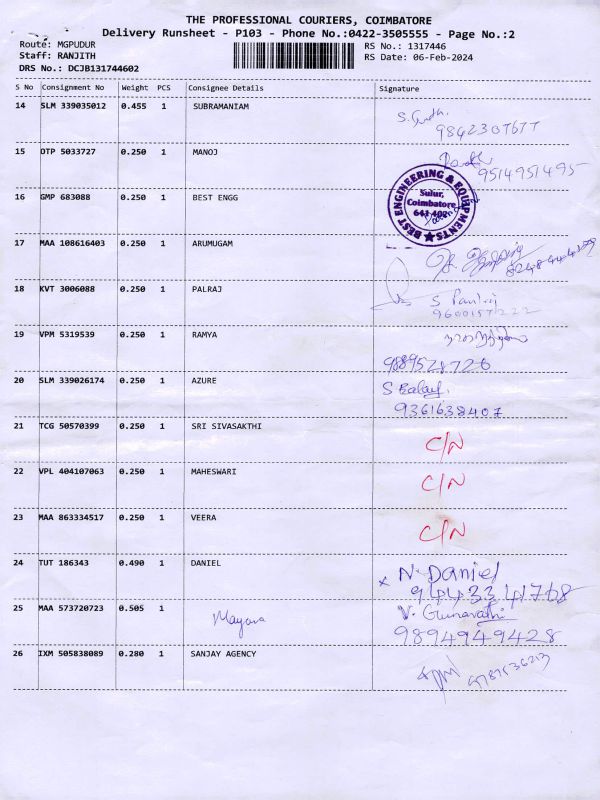 THE PROFESSIONAL COURIERS, COIMBATORE
Delivery Runsheet - P103 - Phone No.:0422-3505555 - Page No.:2
Route: MGPUDUR RS No.: 1317446
Staff: RANJITH RS Date: 06-Feb-2024
DRS No.: DCJB131744602
S No Consignment No Weight PCS Consignee Details Signature
14 SLM 339035012 0.455 1 SUBRAMANIAM
15 OTP 5033727 0.250 1 MANOJ
9514951495
16 GMP 683088 0.250 1 BEST ENGG
BEST ENGINEERING & EQUIPMENTS
Sulur,
Coimbatore
641 402
17 MAA 108616403 0.250 1 ARUMUGAM
18 KVT 3006088 0.250 1 PALRAJ
9600157222
19 VPM 5319539 0.250 1 RAMYA
9889528726
20 SLM 339026174 0.250 1 AZURE
9361638407
21 TCG 50570399 0.250 1 SRI SIVASAKTHI
C/N
22 VPL 404107063 0.250 1 MAHESWARI
C/N
23 MAA 863334517 0.250 1 VEERA
C/N
24 TUT 186343 0.490 1 DANIEL
N. Daniel
9443341768
25 MAA 573720723 0.505 1
V. Gunavathi
9894949428
26 IXM 505838089 0.280 1 SANJAY AGENCY